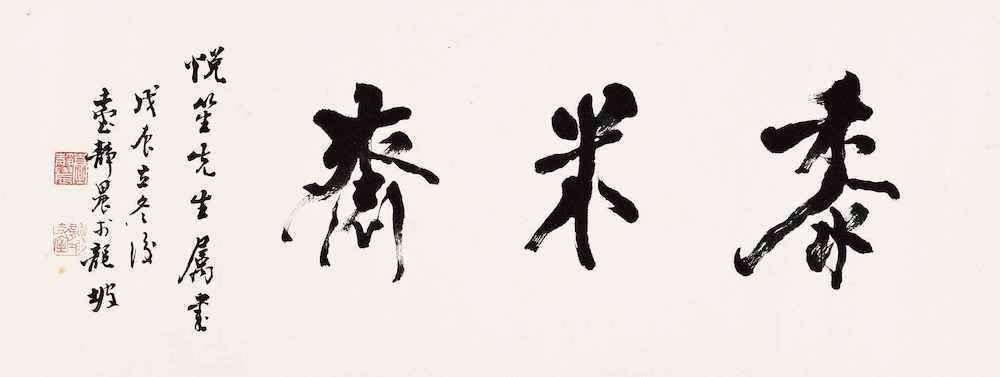 黍米齋
悅笙先生屬書
戊辰立冬後
臺靜農於龍坡